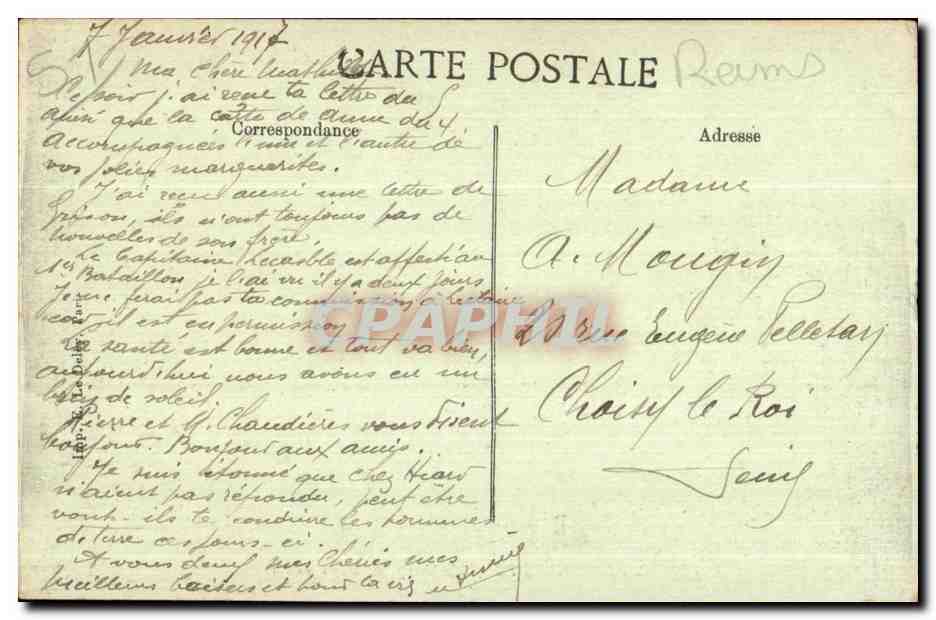 7 Janvier 1917
Ma chère Mathilde
CARTE POSTALE
Reims
Ce soir j'ai reçu ta lettre du
ainsi que la carte de du 4
Correspondance
accompagnées l'une et l'autre de
vos jolies marguerites.
J'ai reçu aussi une lettre de
Grison, ils n'ont toujours pas de
nouvelles de son frère.
Le Capitaine est affecté au
1er Bataillon je l'ai vu il y a deux jours
Je ne ferai pas ta commission à
car il est en permission
La santé est bonne et tout va bien,
aujourd'hui nous avons eu un
brin de soleil.
Pierre et G. Chaudières vous disent
bonjour. Bonjour aux amis.
Je suis étonné que chez
n'aient pas répondu, peut être
vont-ils te conduire les pommes
de terre ces jours-ci.
A vous deux mes Chéries mes
meilleurs baisers et pour la vie
Imp. E. Le Deley, Paris
CPAPHIL
Adresse
Madame
A. Mougin
20 rue Eugène Pelletan
Choisy le Roi
Seine